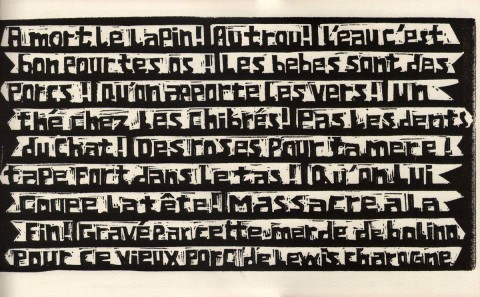 A mort Le Lapin! Au trou! L'eau c'est
bon pour tes os! Les bebes sont des
porcs! Qu'on apporte Les vers! un
thé chez Les Chibrés! Pas Les dents
du Chat! Des roses Pour ta mere!
tape fort dans Le tas! Qu'on Lui
Coupe La tête! Massacre a la
Fin! Gravé par cette merde de bolino
Pour ce vieux porc de Lewis charogne